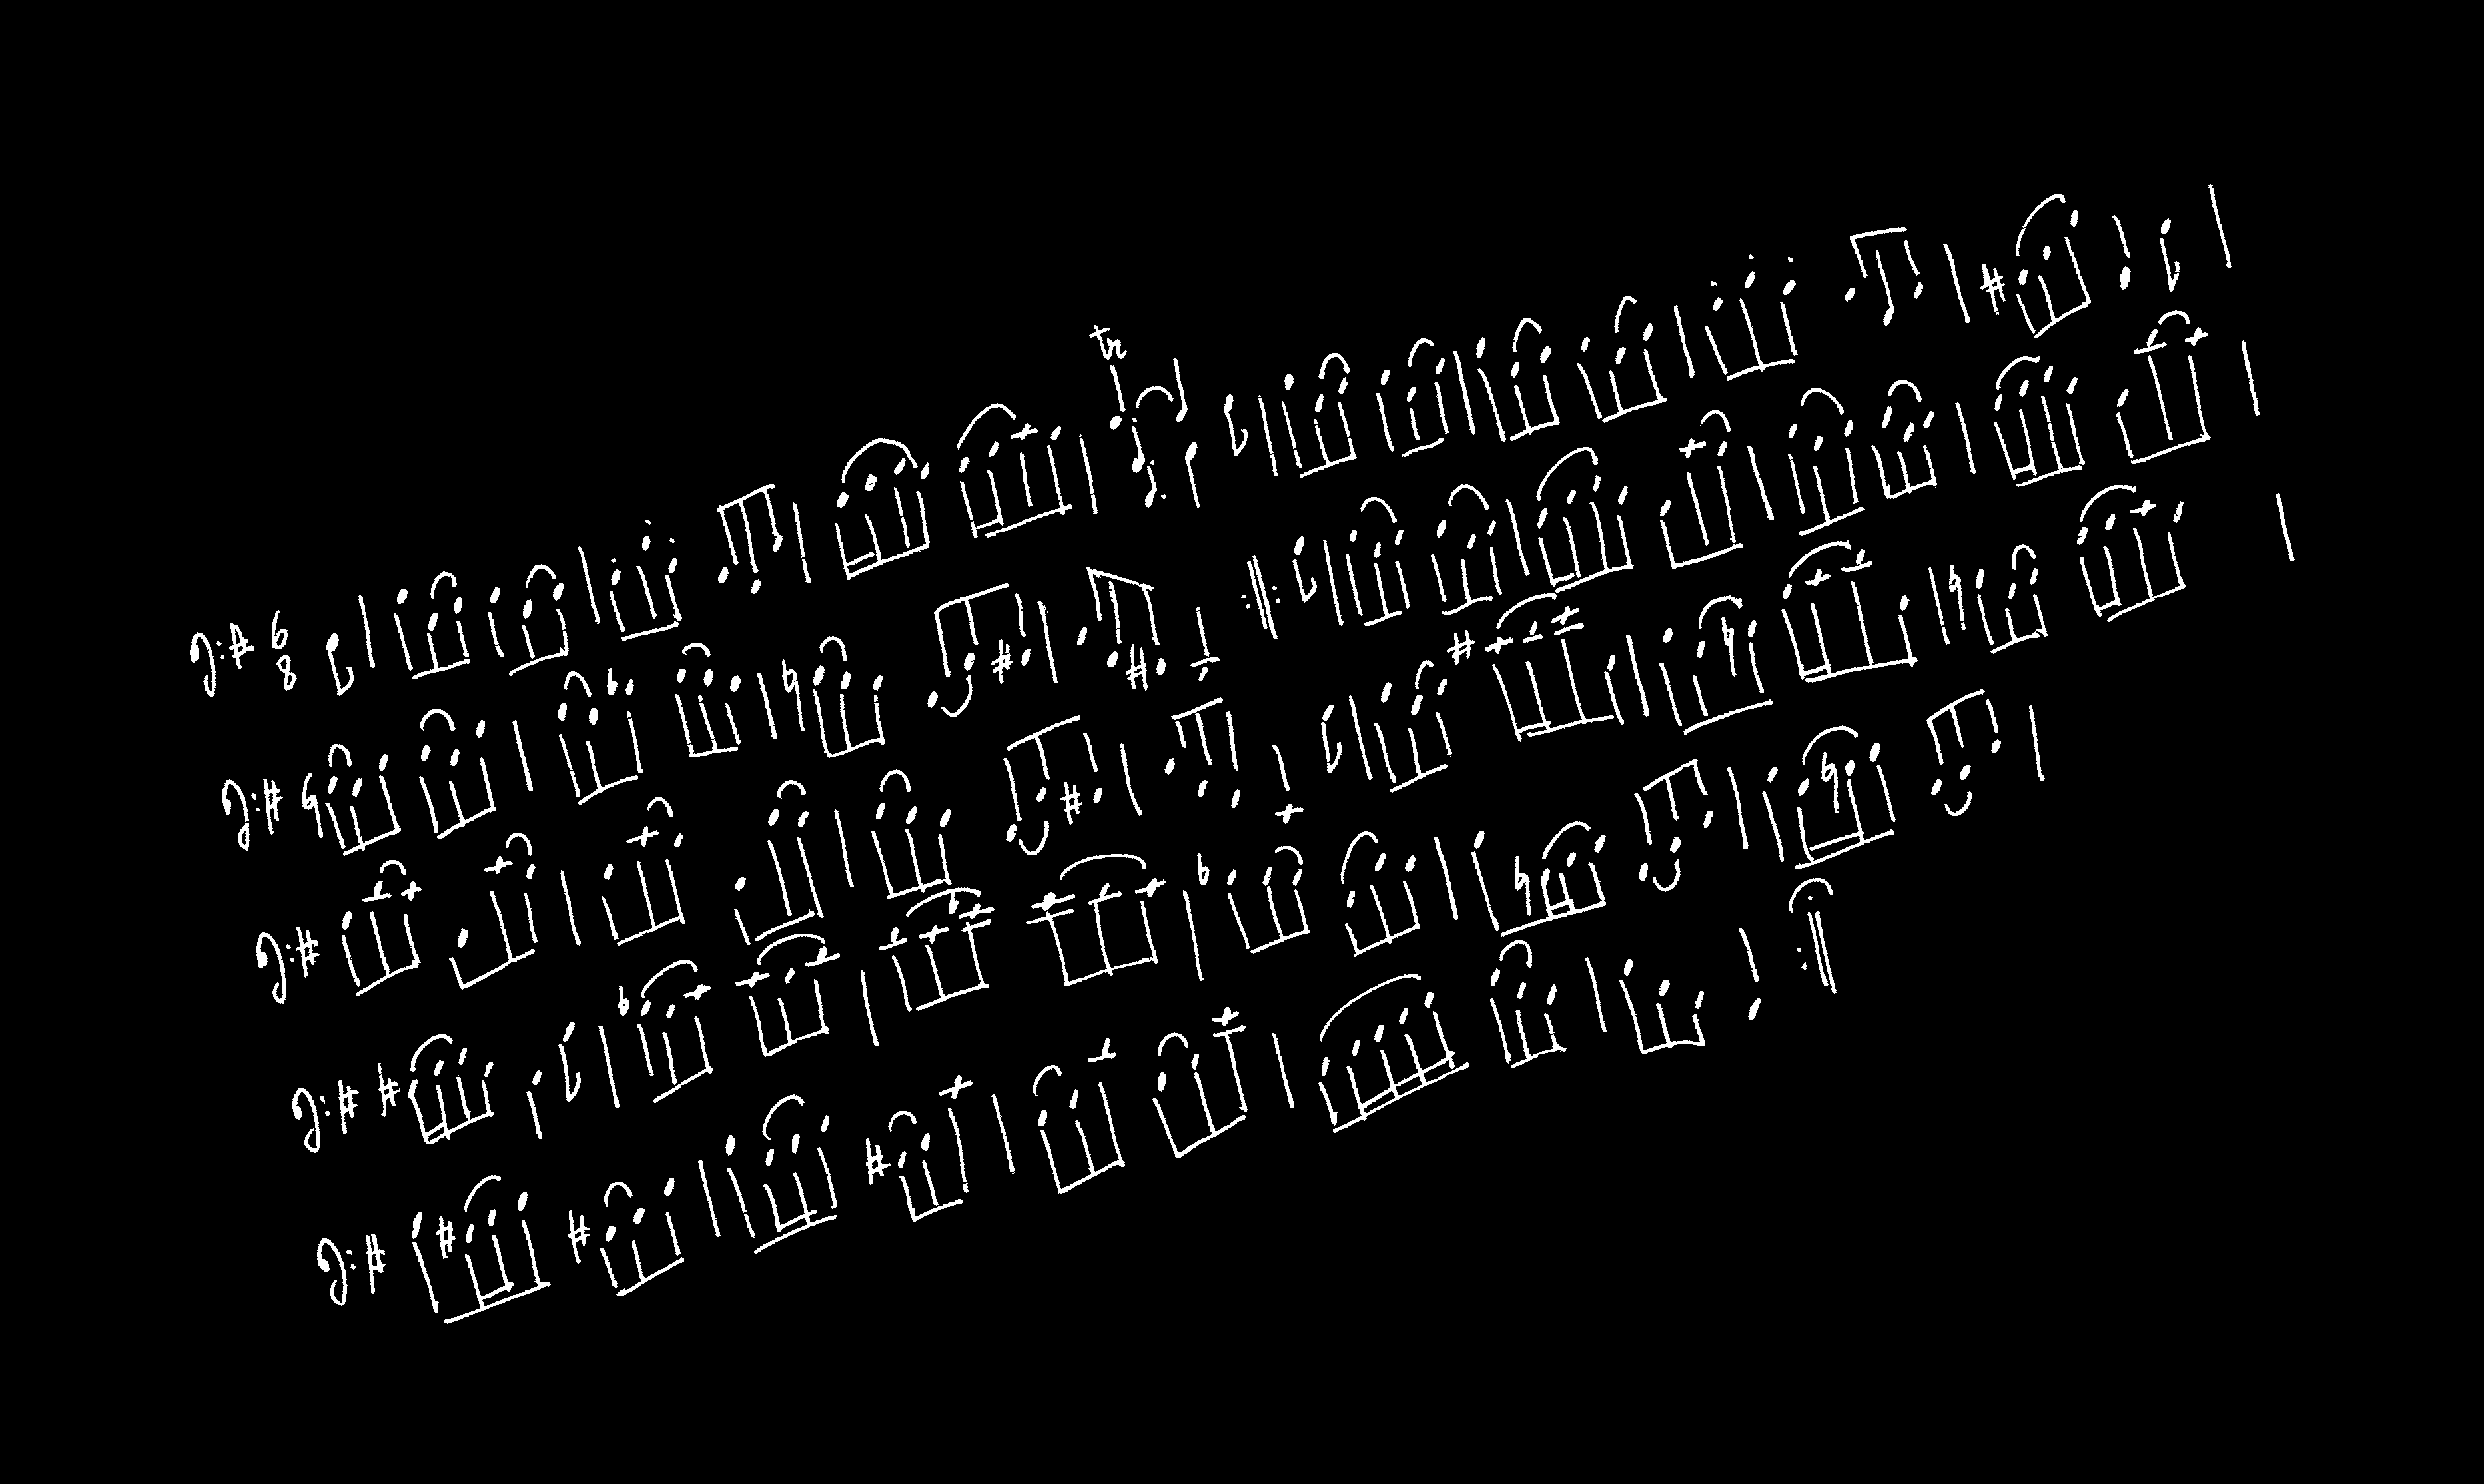 6
8
tr